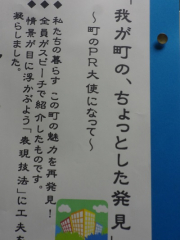 「我が町の、ちょっとした発見」
～町のＰＲ大使になって～
◆私たちの暮らす この町の魅力を再発見！
◆全員がスピーチで紹介したものです。
◆情景が目に浮かぶよう「表現技法」に工夫を
凝らしました。